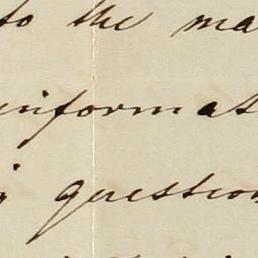 to the ma
informat
question